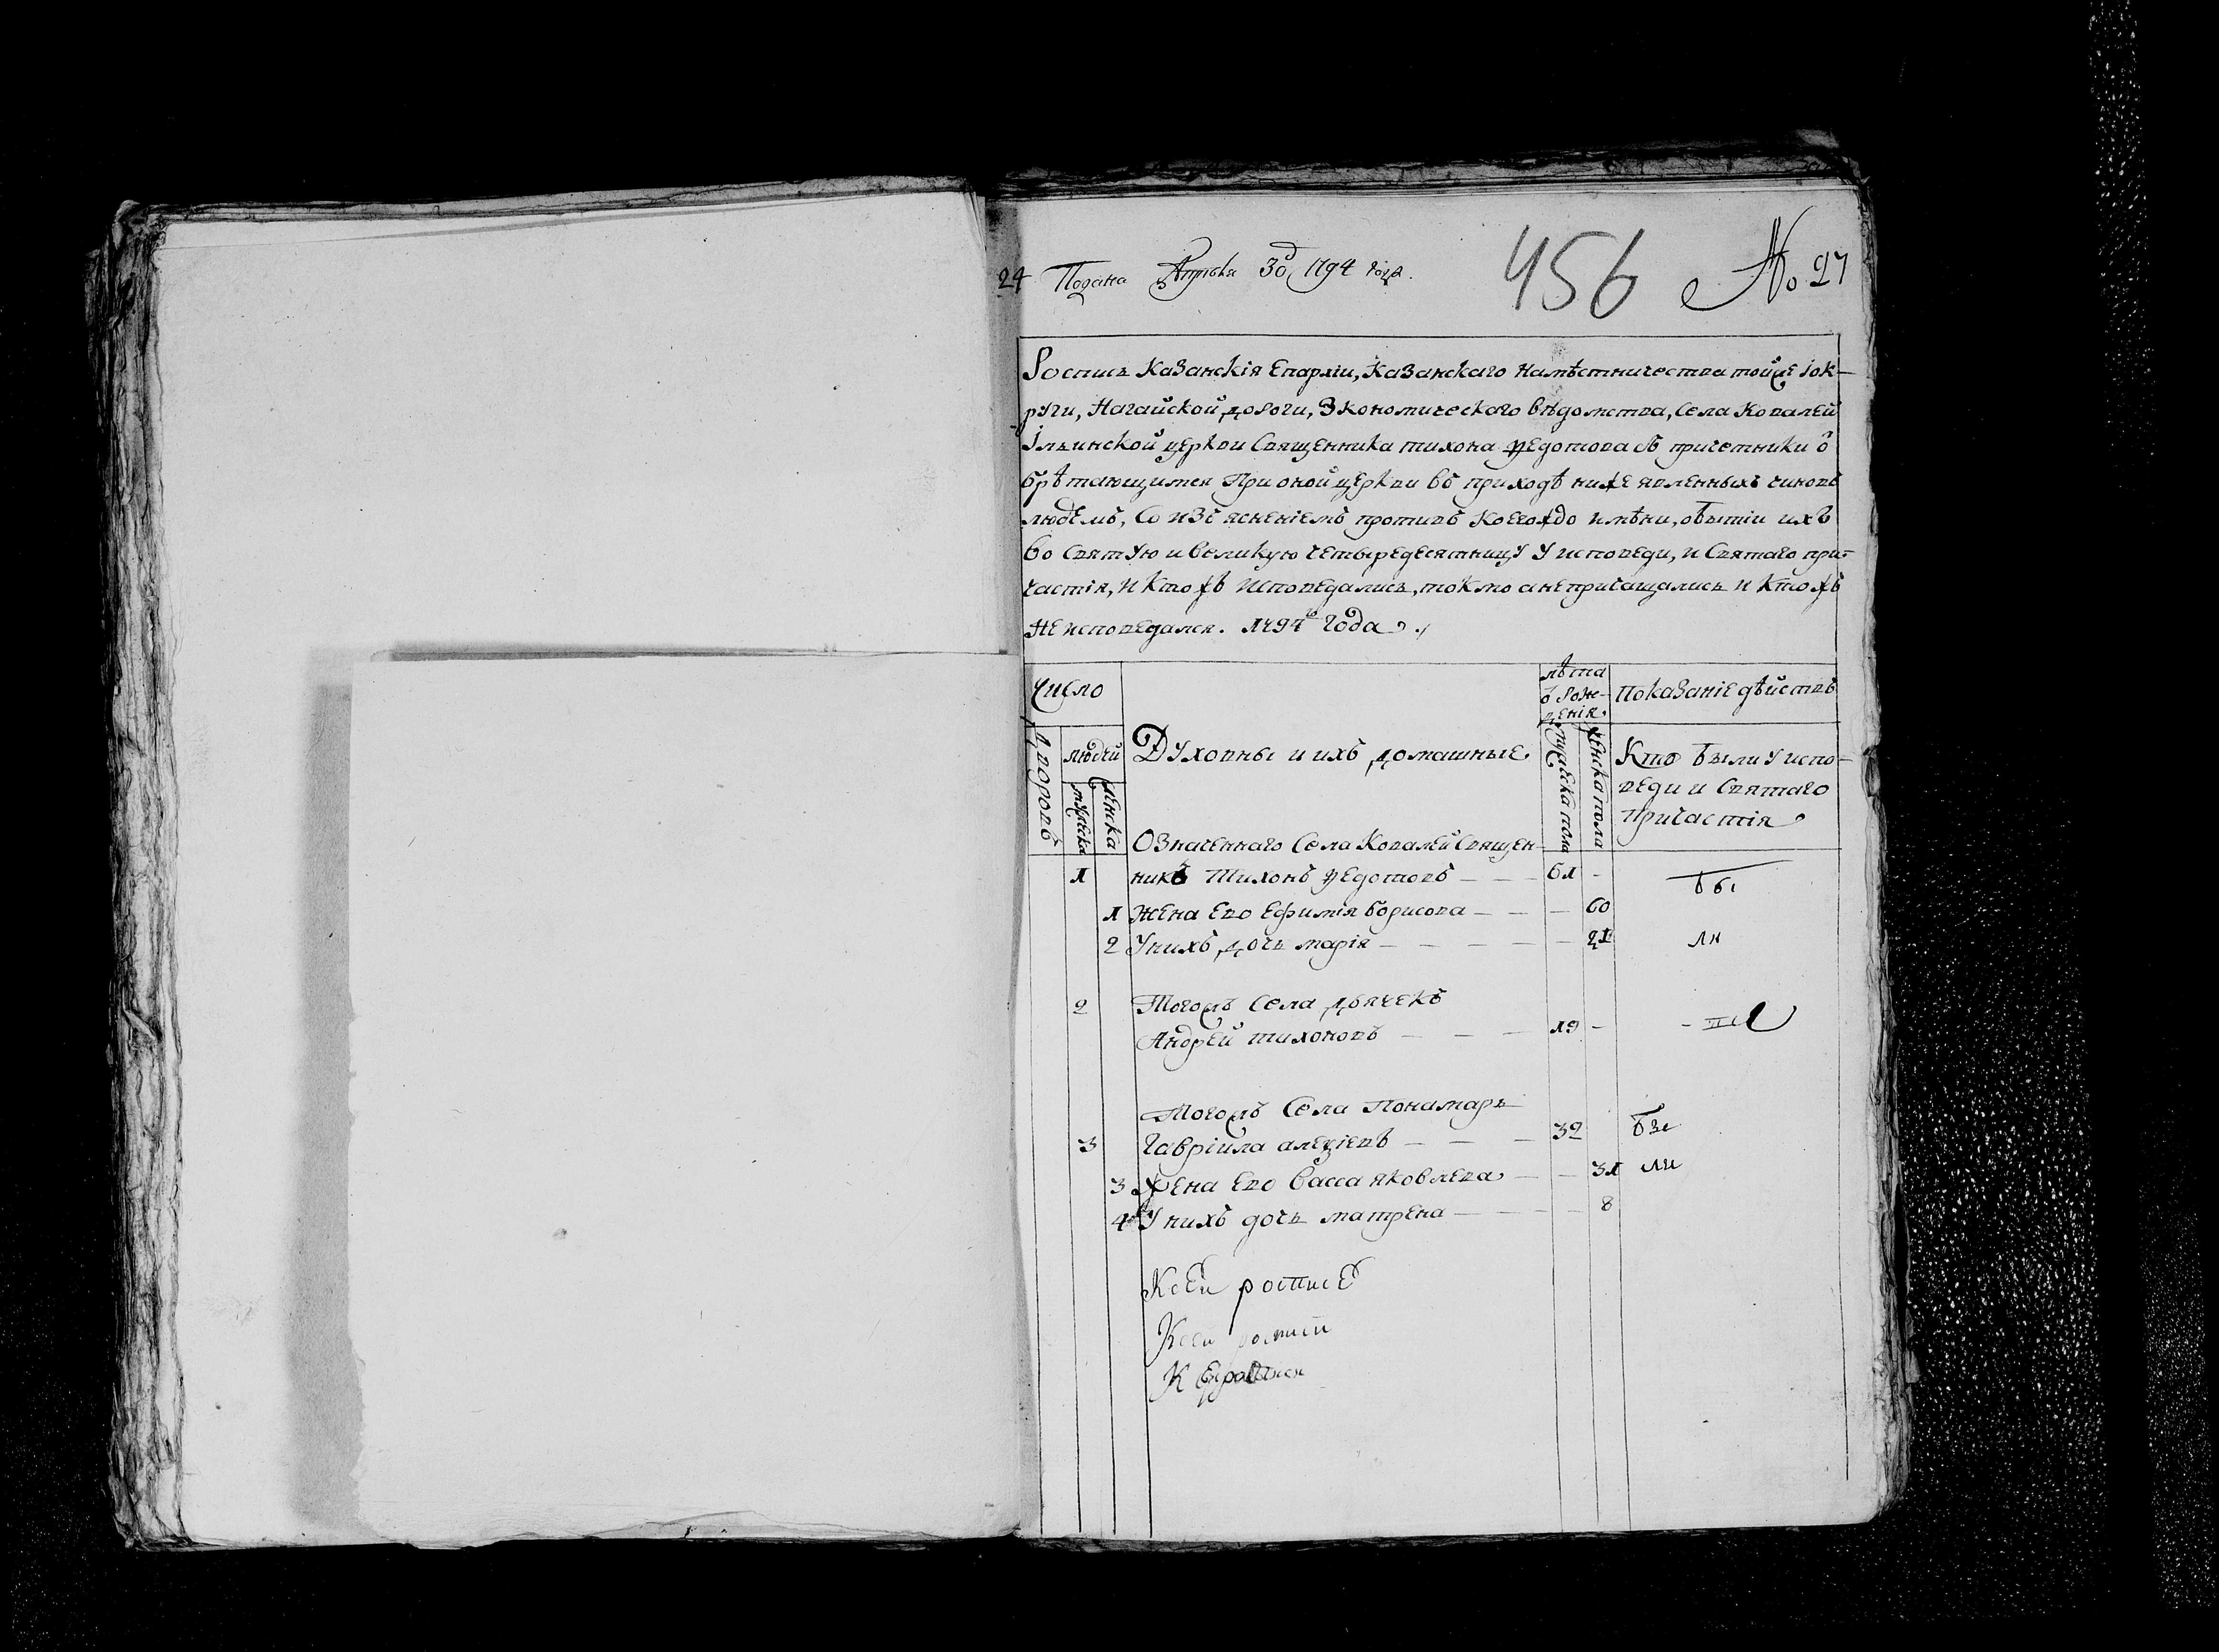 24 Подана Апреля 30д 1794 года.
456 No 27
Роспись Казанскія Епархіи, Казанскаго Намѣстничества тойже іок-
руги, Нагайской дороги, Экономическаго вѣдомства, Села Ковалей
Ільинской церкви Священника тихона Ѳедотова съ причетники о
брѣтающимся При оной церкви въ приходѣ нижеявленныхъ чиновъ
людемъ, Со изъясненіемъ противъ Коегождо имѣни, о бытіи ихъ
во Святую и великую четыредесятницу У исповеди, и Святаго при-
частія, и Кто жъ Исповедались, токмо а непричащались и Кто жъ
Не исповедался. 1794г Года.
Число
лѣта о рож-
денія.
Показаніе дѣиствъ
Дворовъ
людей
мужеска
женска
Духовны и ихъ домашные
мужеска пола
женска пола
Кто были У испо-
веди и Святаго
Причастія
Означеннаго Села Ковалей Священ-
1 никъ Тихонъ Ѳедотовъ — — — 61 - бы
1 Жена Ево Ефимія борисова — — — 60
2 Унихъ дочь марія — — — — — — 21 ли
2 Тогожъ Села дьячекъ
Андрей тихоновъ — — — 19 -
Тогожъ Села Пономарь
3 Гавріила алеѯіевъ — — — 32 бы
3 Жена Ево Васса яковлева — — 31 ли
4 У нихъ дочь матрена — — — — 8
Ксеи росписѣ
Ксеи росписи
К